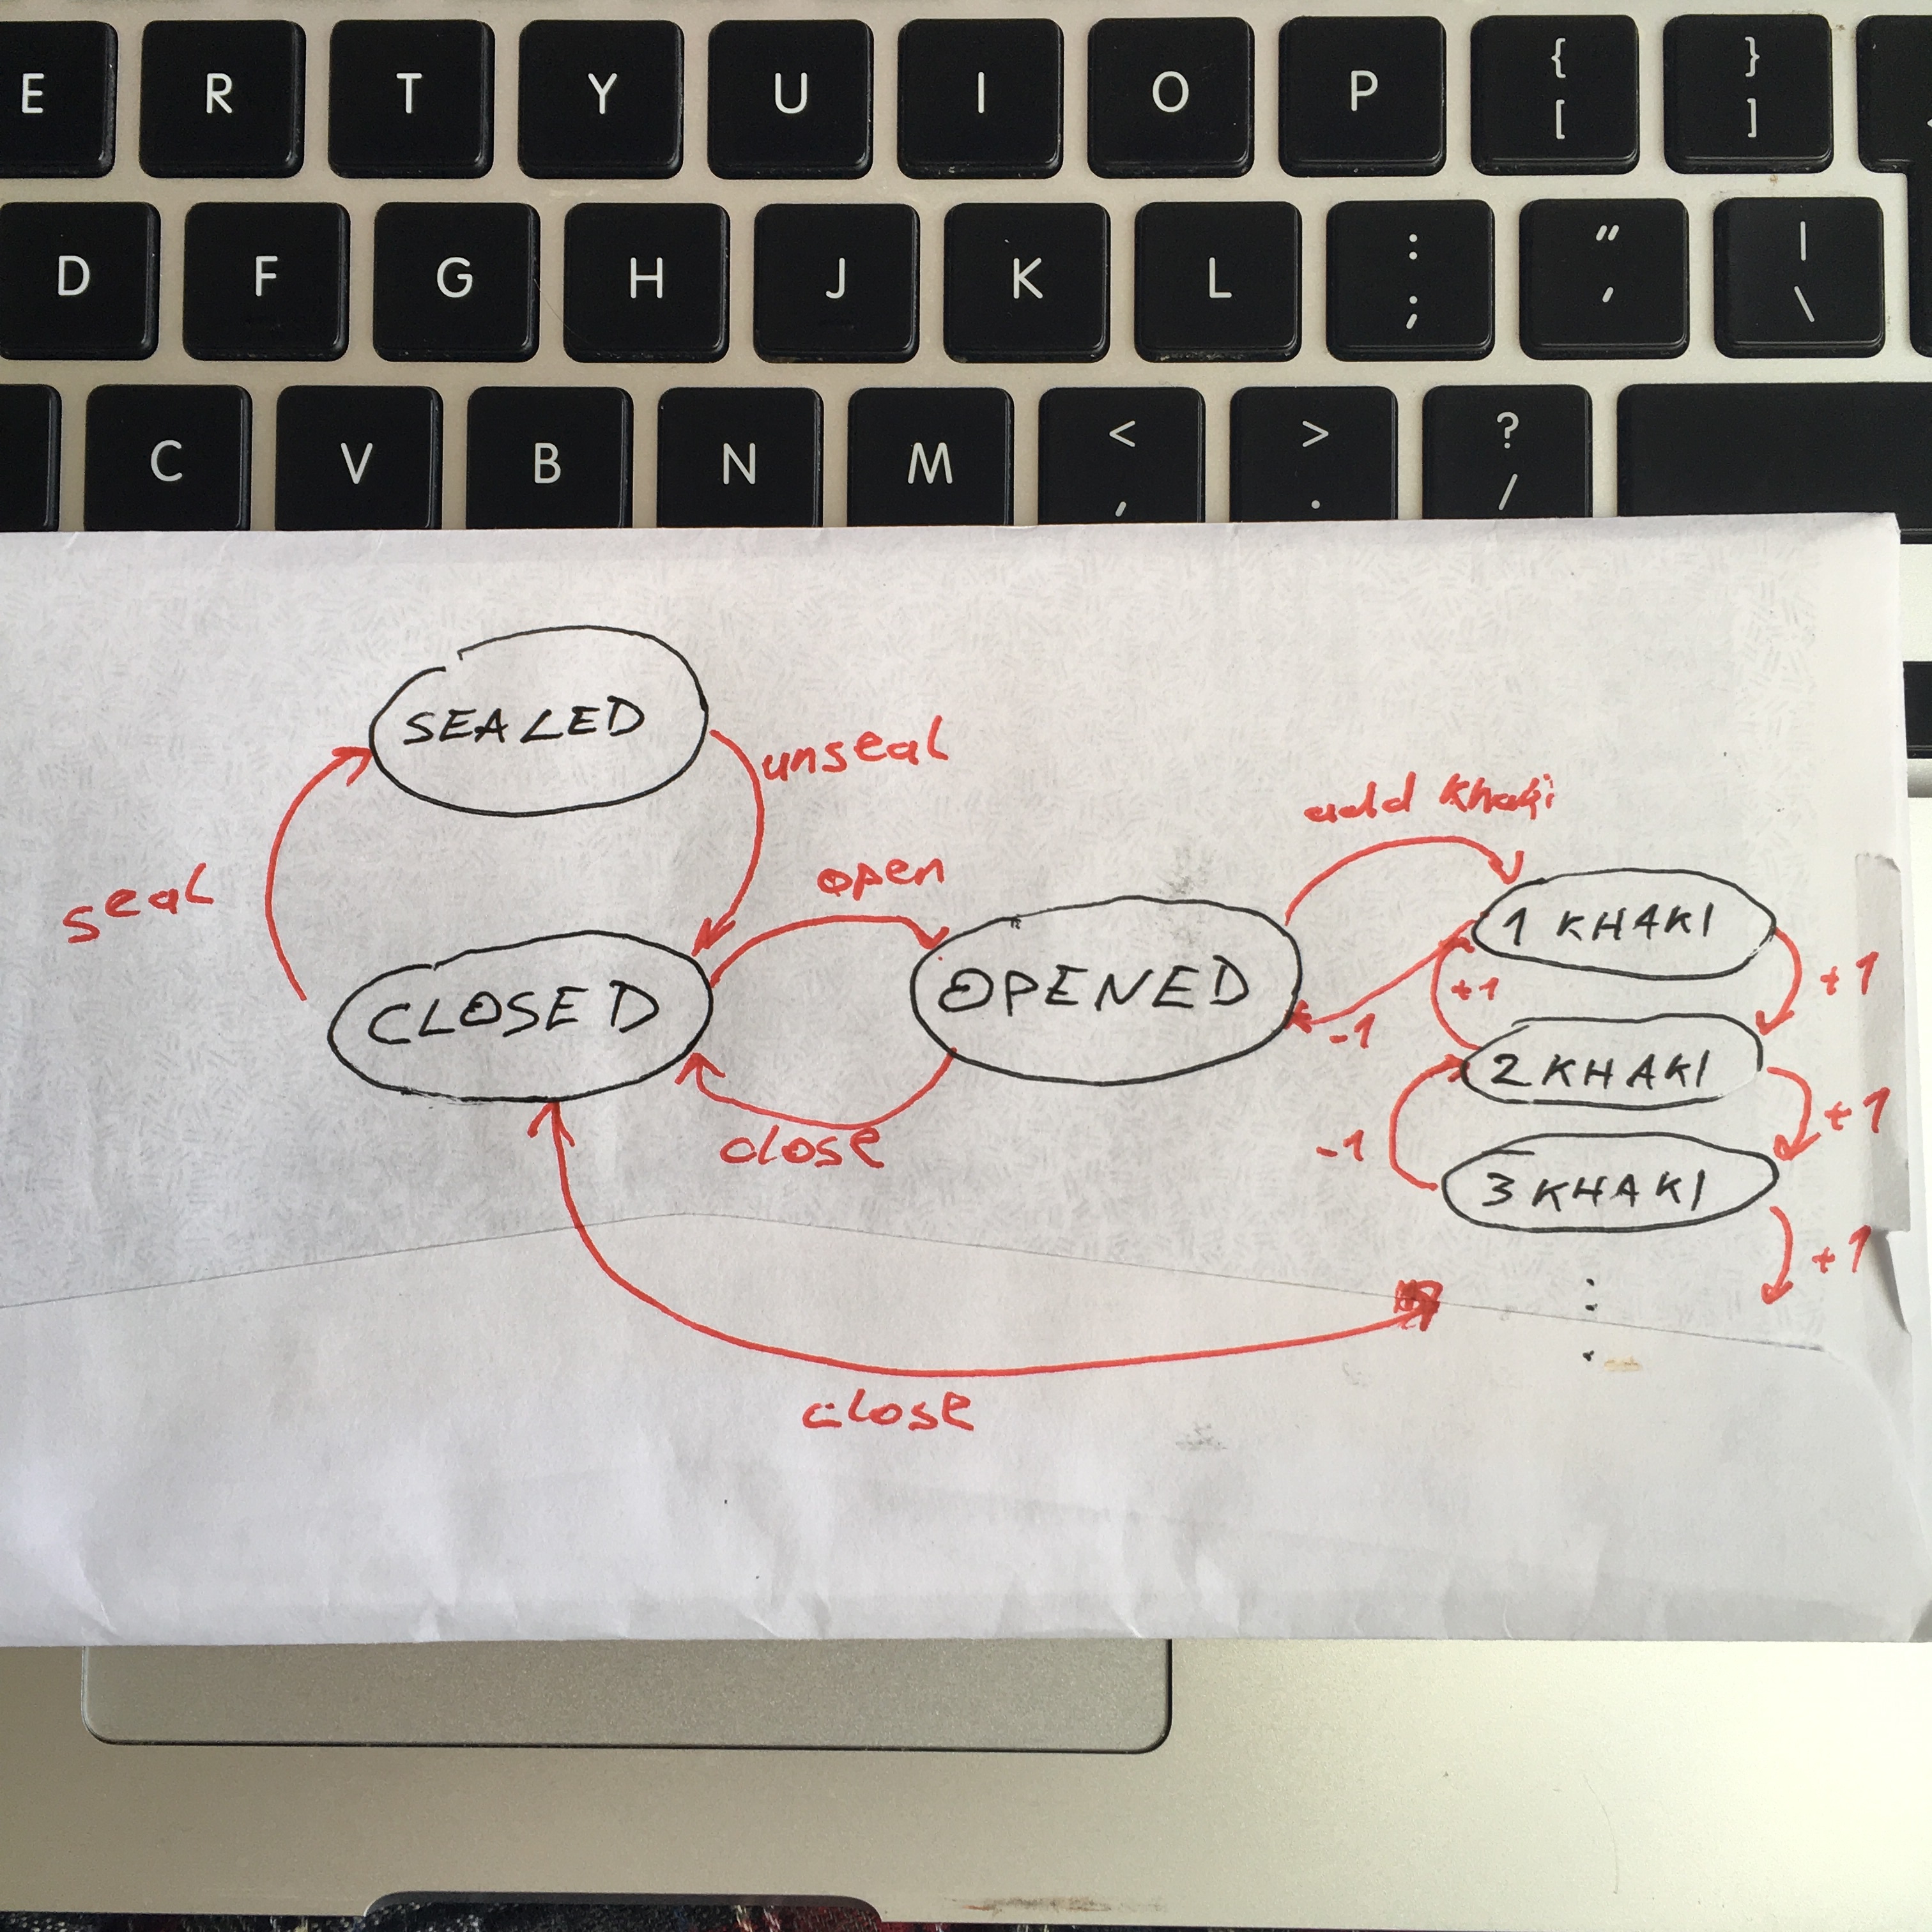 E R T Y U I O P { [ } ]
D F G H J K L : ; " ' | \
C V B N M < , > . ? /
SEALED
unseal
seal
open
add khaki
CLOSED
OPENED
close
1 KHAKI
+1
-1
+1
2 KHAKI
+1
-1
3 KHAKI
+1
close